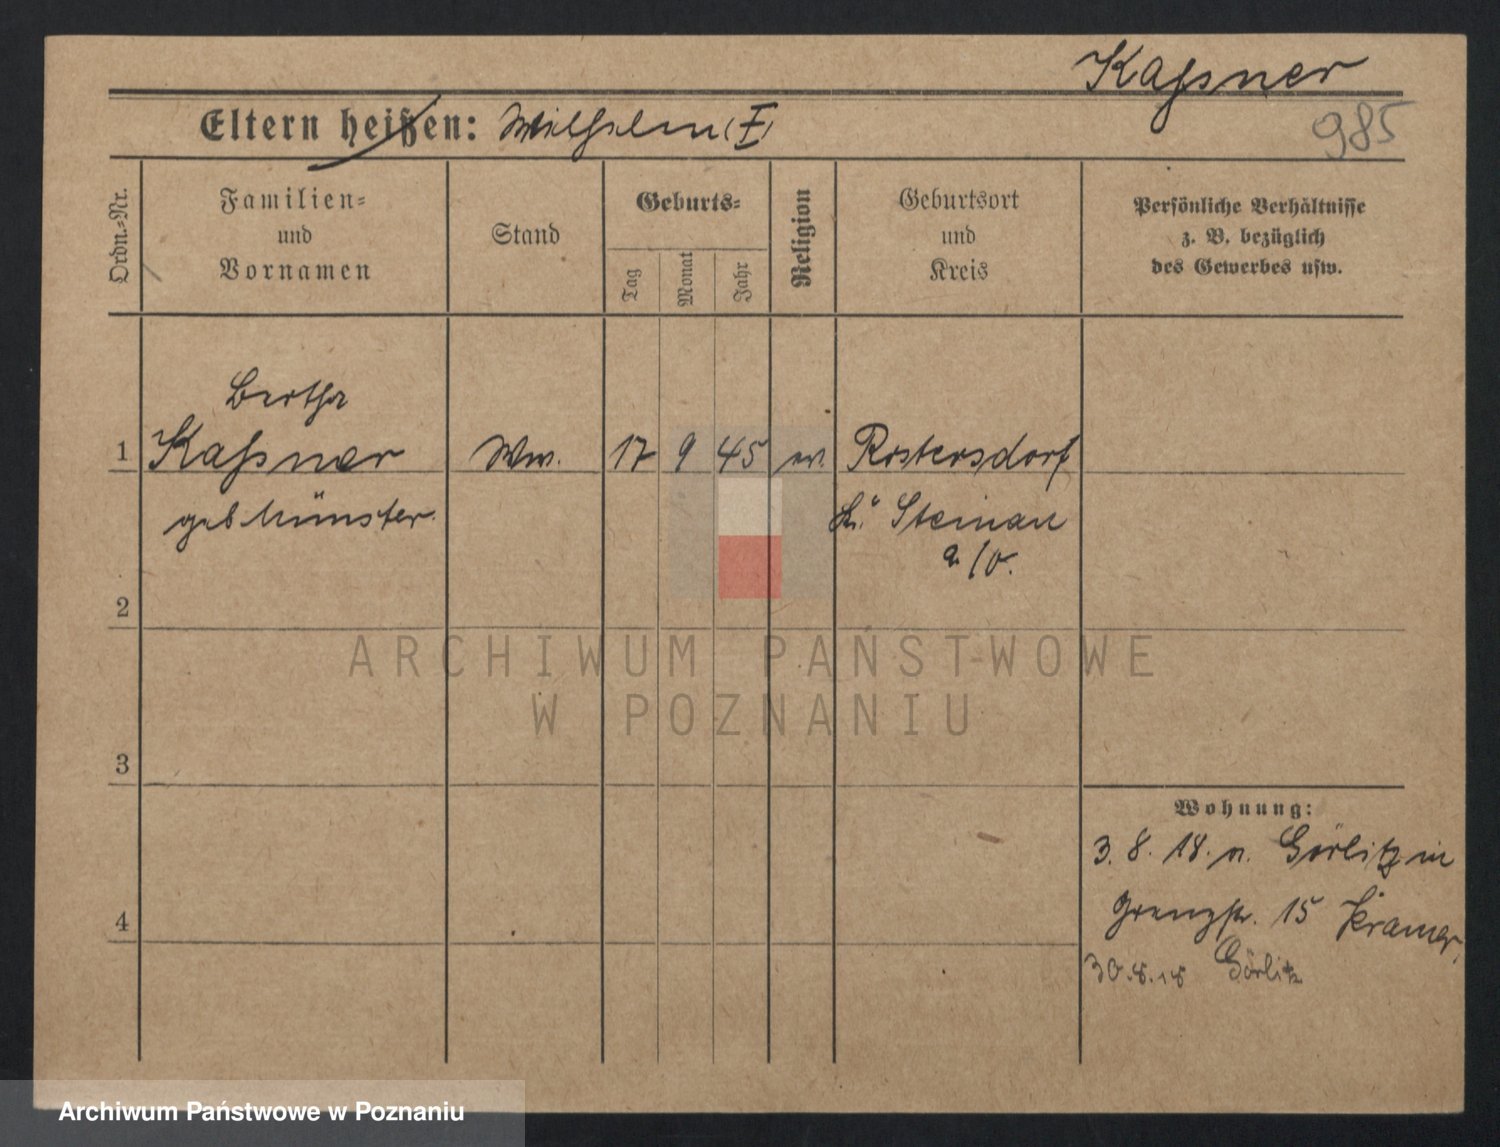 Kaßner
985
Eltern heißen: Wilhelm (F)
Ordn.=Nr.
Familien=
und
Vornamen
Stand
Geburts=
Tag
Monat
Jahr
Religion
Geburtsort
und
Kreis
Persönliche Verhältnisse
z. B. bezüglich
des Gewerbes usw.
Bertha
1 Kaßner Ww. 17 9 45 ev. Rostersdorf
geb Münster. Kr. Steinau
a/O.
2
ARCHIWUM PAŃSTWOWE
W POZNANIU
3
Wohnung:
3. 8. 18. n. Görlitz in
Grenzstr. 15 Kramer,
4
30.8.18 Görlitz
Archiwum Państwowe w Poznaniu